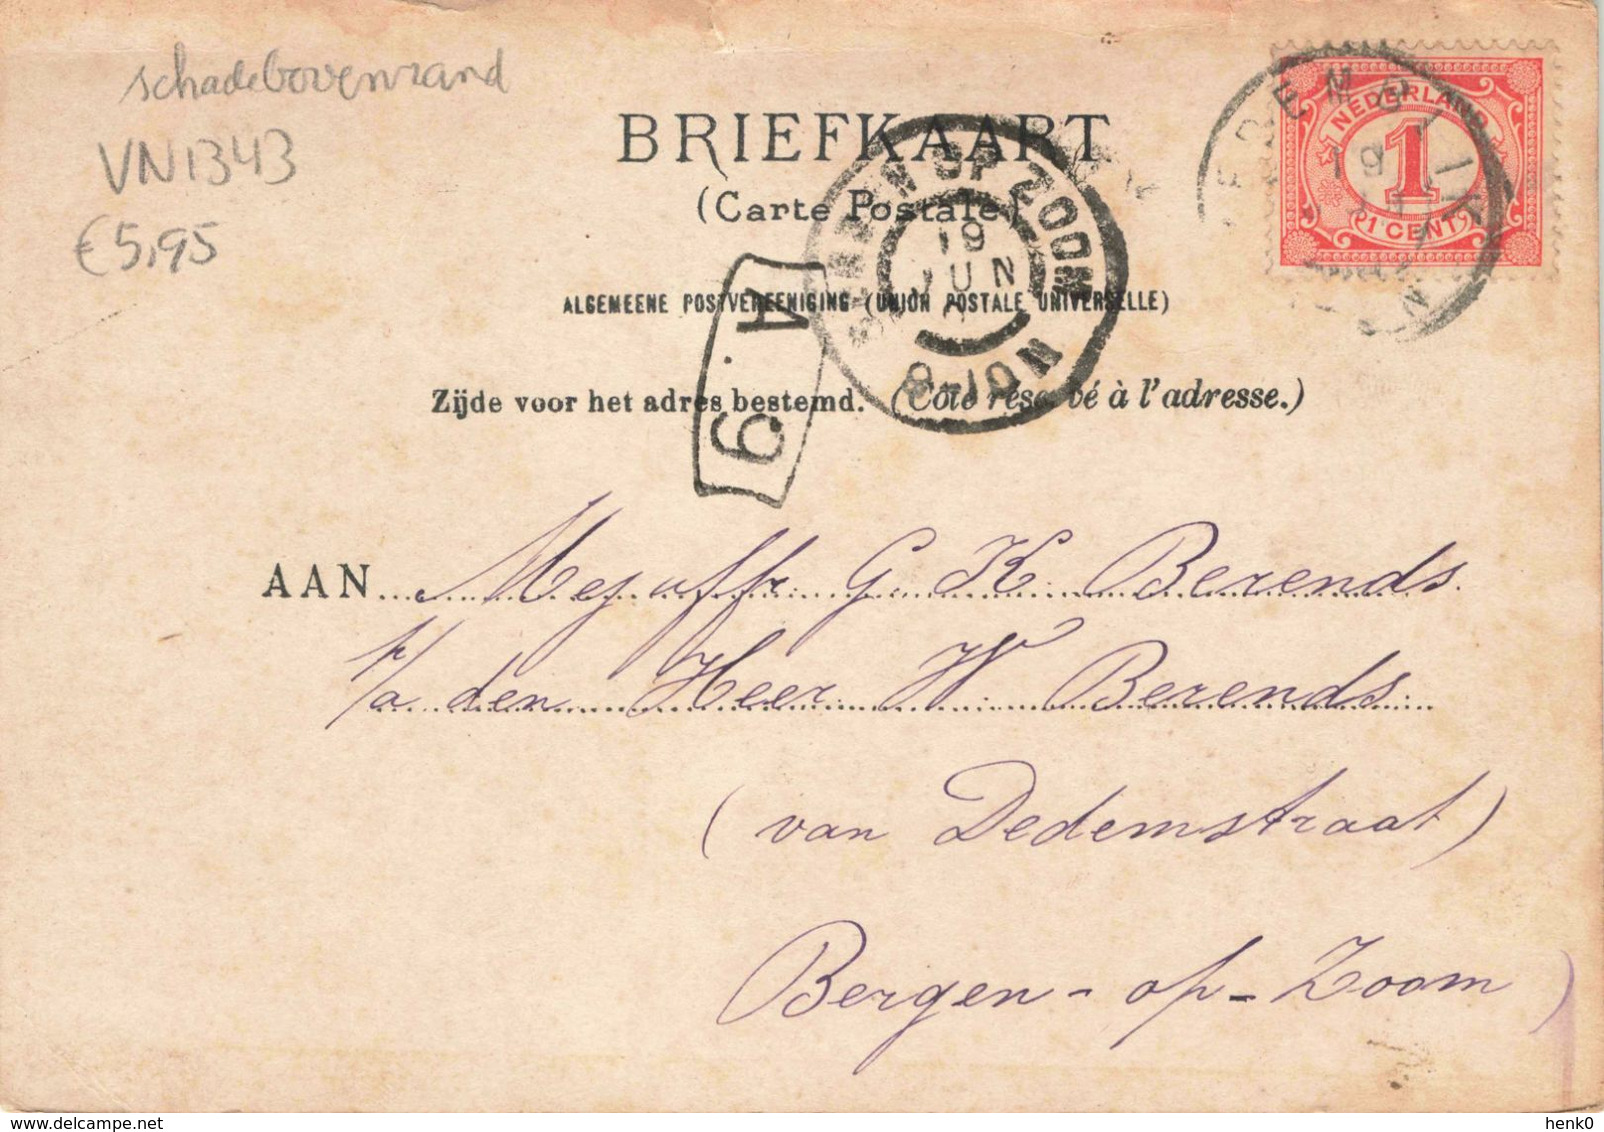 schade bovenrand
VN1343
€5,95
BRIEFKAART
(Carte Postale)
ALGEMEENE POSTVEREENIGING (UNION POSTALE UNIVERSELLE)
Zijde voor het adres bestemd. (Côté réservé à l'adresse.)
NEDERLAND
1
1 CENT
BERGEN OP ZOOM
19
JUN
8-10N
A.9
AAN Mejuffr. G. K. Berends.
p/a den Heer W. Berends.
(van Dedemstraat)
Bergen-op-Zoom
delcampe.net
henk0